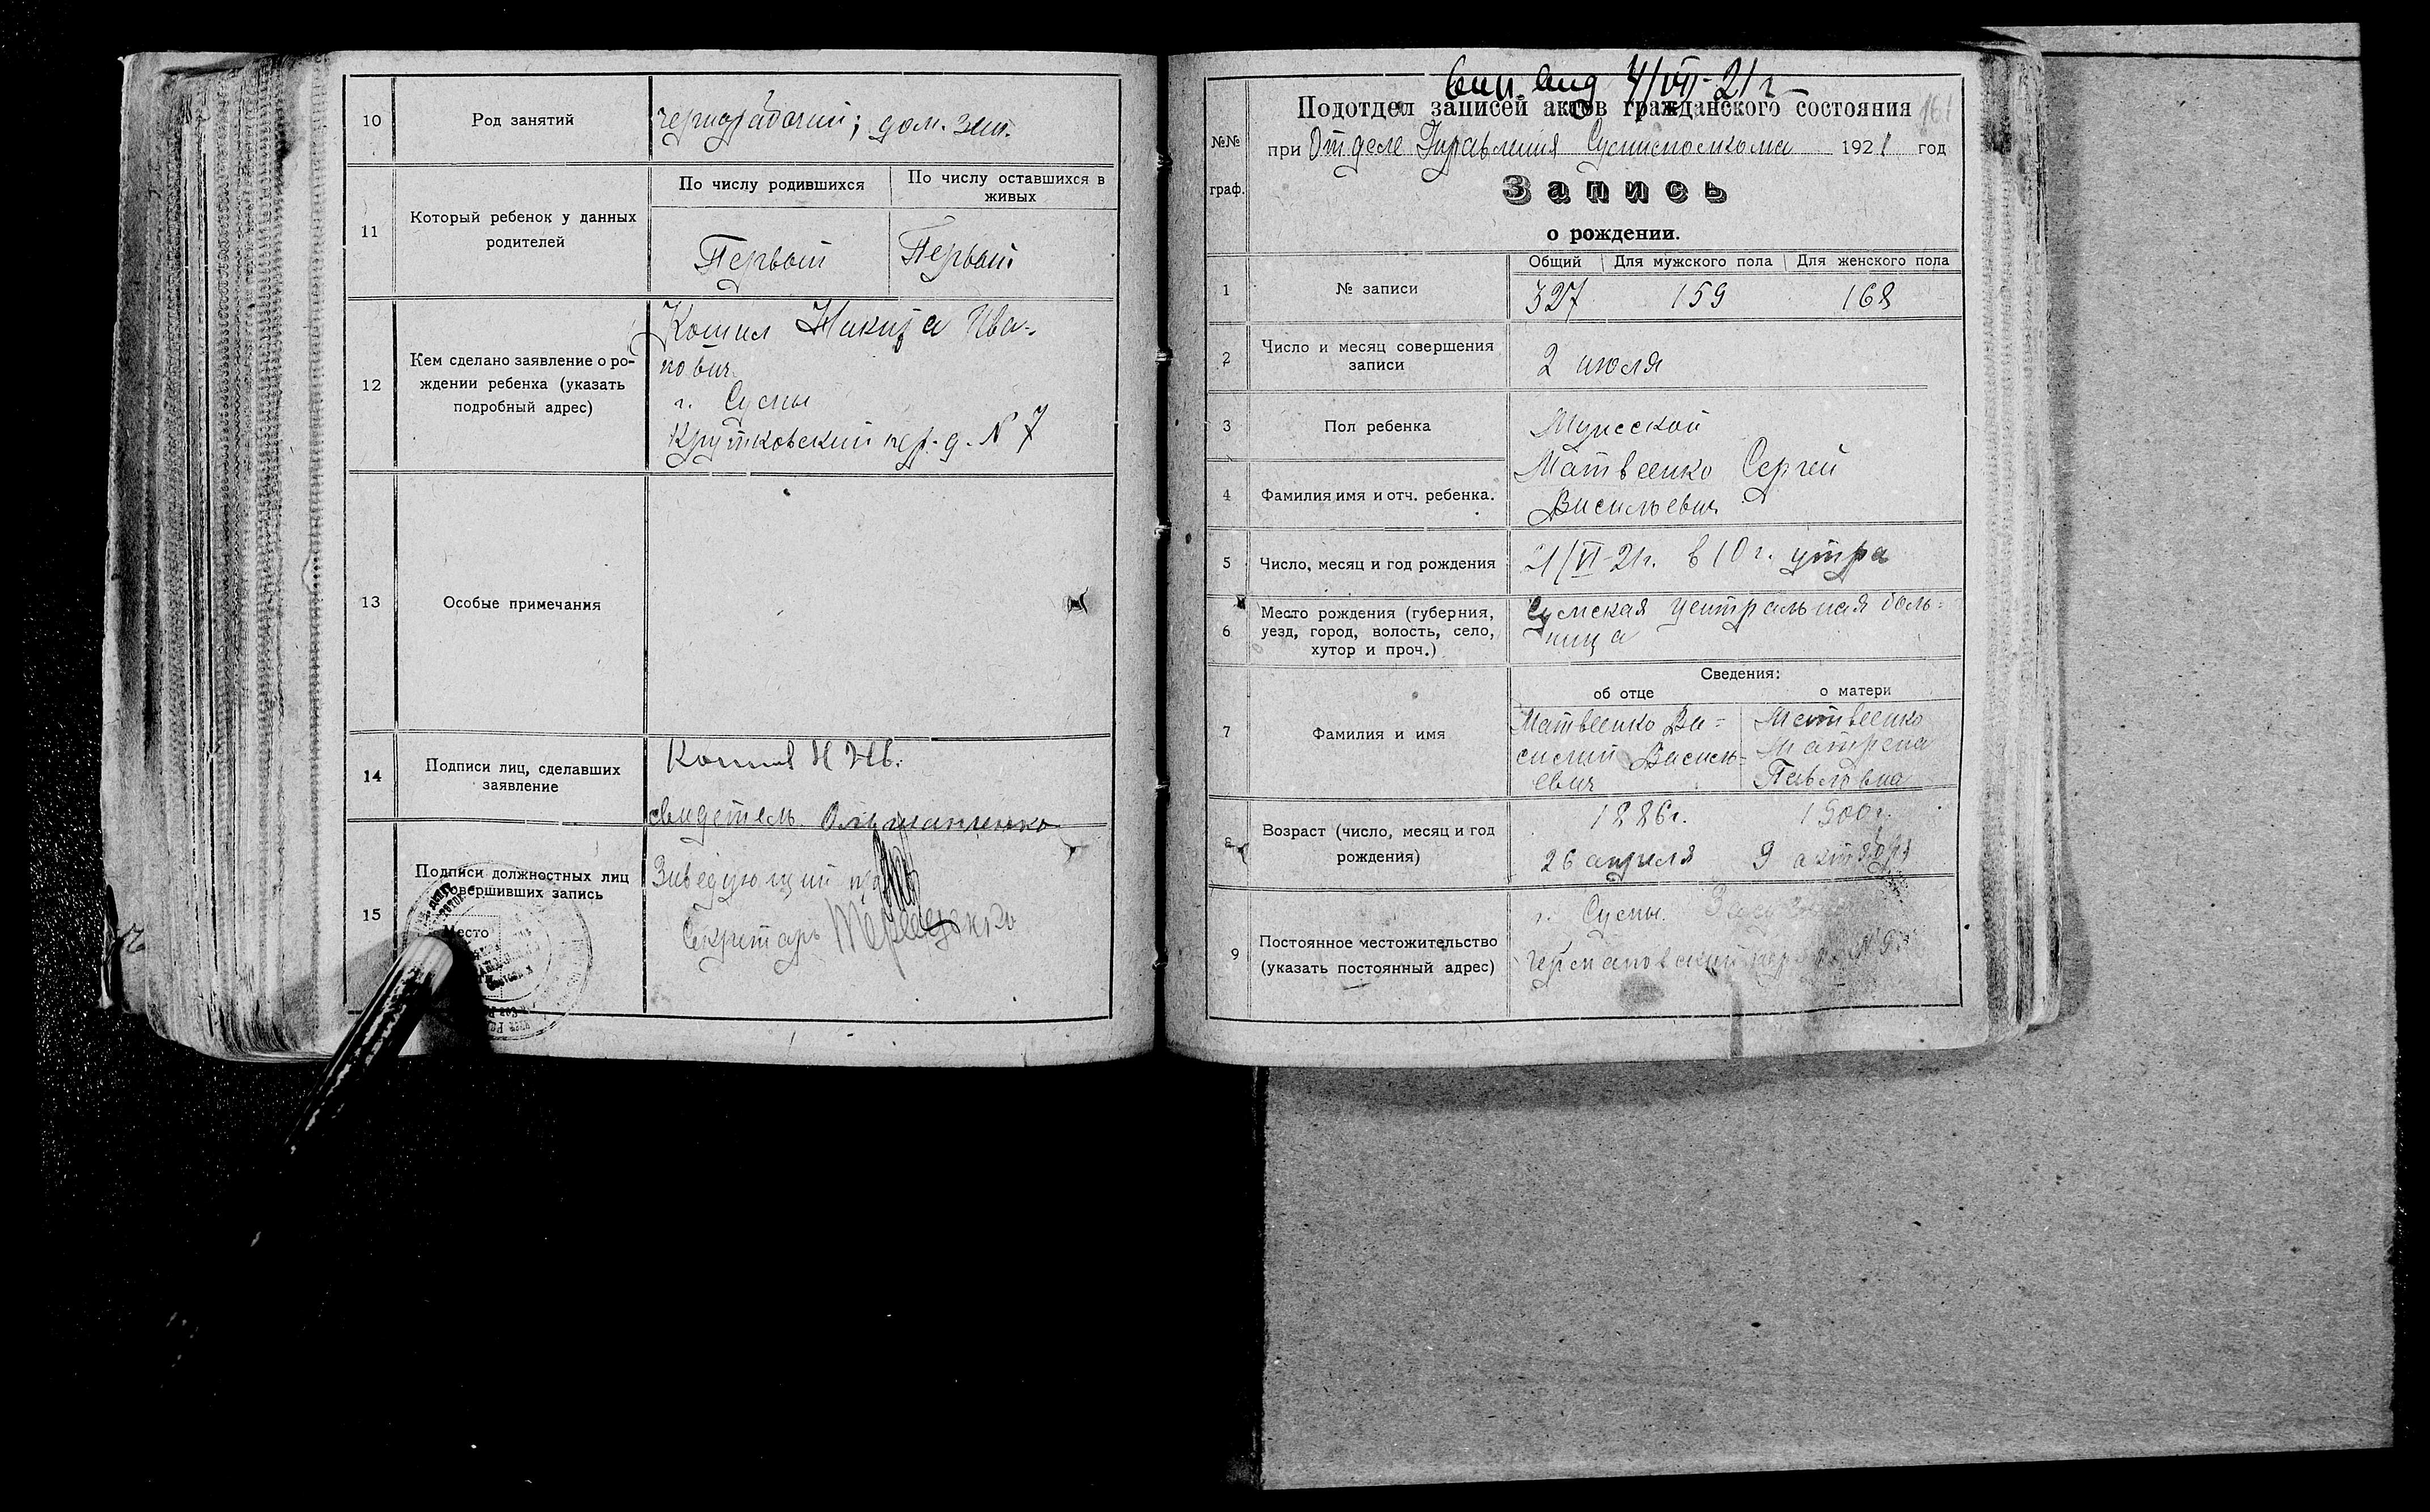 10
Род занятий
чернорабочий; дом. зан.
11
Который ребенок у данных
родителей
По числу родившихся
По числу оставшихся в
живых
Первый
Первый
12
Кем сделано заявление о ро-
ждении ребенка (указать
подробный адрес)
Никита Ива-
нович
г. Сумы
Крутковский пер. д. № 7
13
Особые примечания
14
Подписи лиц, сделавших
заявление
свидетель
15
Подписи должностных лиц
совершивших запись
Место
Заведующий
Секретарь
4/VII-21 г
Подотдел записей актов гражданского состояния
161
№№
граф.
при Отделе Управления Сумисполкома 1921 год
Запись
о рождении.
1
№ записи
Общий
Для мужского пола
Для женского пола
327
159
168
2
Число и месяц совершения
записи
2 июля
3
Пол ребенка
Мужской
4
Фамилия имя и отч. ребенка.
Матвеенко Сергей
Васильевич
5
Число, месяц и год рождения
21/VI-21г. в 10 г. утра
6
Место рождения (губерния,
уезд, город, волость, село,
хутор и проч.)
Сумская центральная боль=
ница
Сведения:
об отце
о матери
7
Фамилия и имя
Матвеенко Ва=
силий Василь=
евич
Матвеенко
Матрена
Павловна
8
Возраст (число, месяц и год
рождения)
1886г.
26 апреля
1900г.
9 октября
9
Постоянное местожительство
(указать постоянный адрес)
г. Сумы.